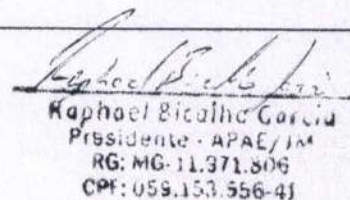 Raphael Bicalho Garcia
Presidente - APAE/JM
RG: MG-11.371.806
CPF: 059.153.556-41